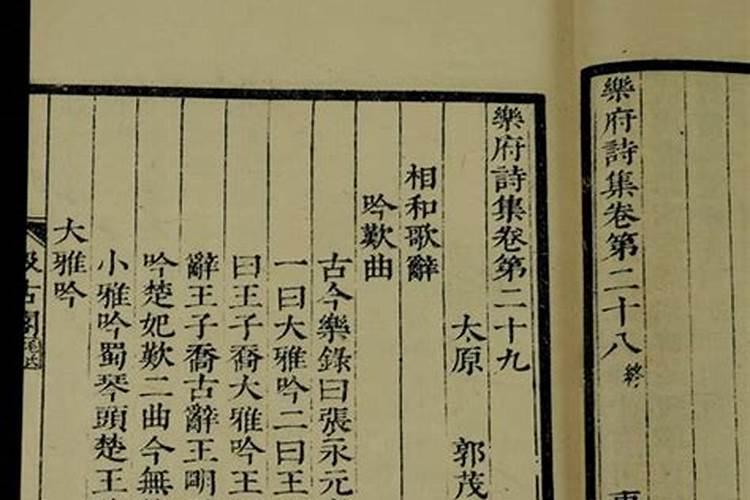 樂府詩集卷第二十八終
樂府詩集卷第二十九
太原 郭茂
相和歌辭
吟歎曲
古今樂錄曰張永元
一曰大雅吟二曰王
曰王子喬大雅吟王
辭王子喬古辭王明
吟楚妃歎二曲今無
小雅吟蜀琴頭楚王
大雅吟
汲古閣